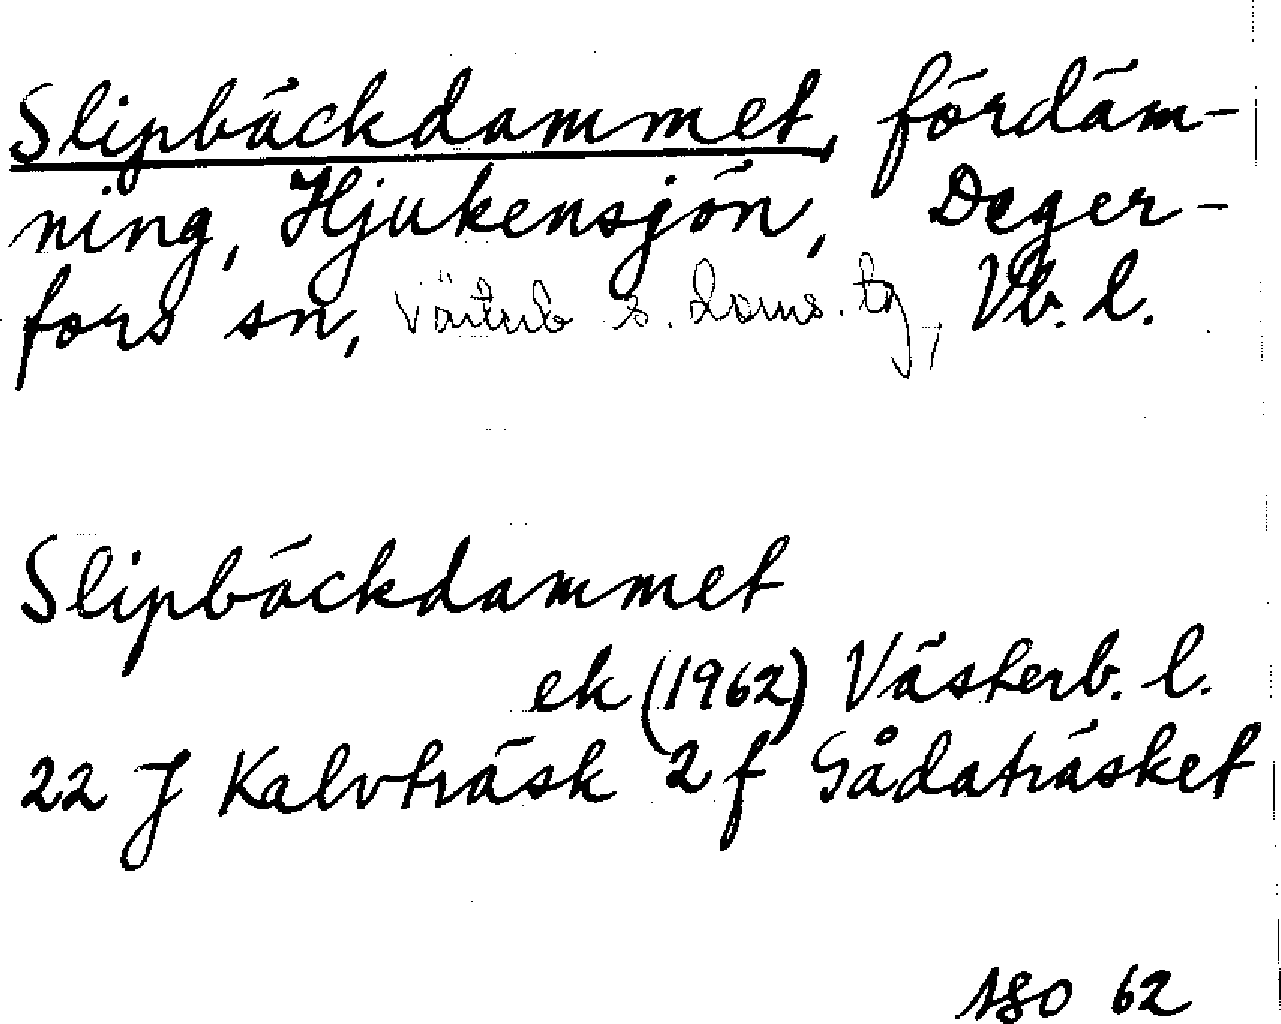 Slipbäckdammet, fördäm-
ning, Hjukensjön, Deger-
fors sn, Västerb s. doms. tg, Vb. l.
Slipbäckdammet
ek (1962) Västerb. l.
22 J Kalvträsk 2 f Gådaträsket
62